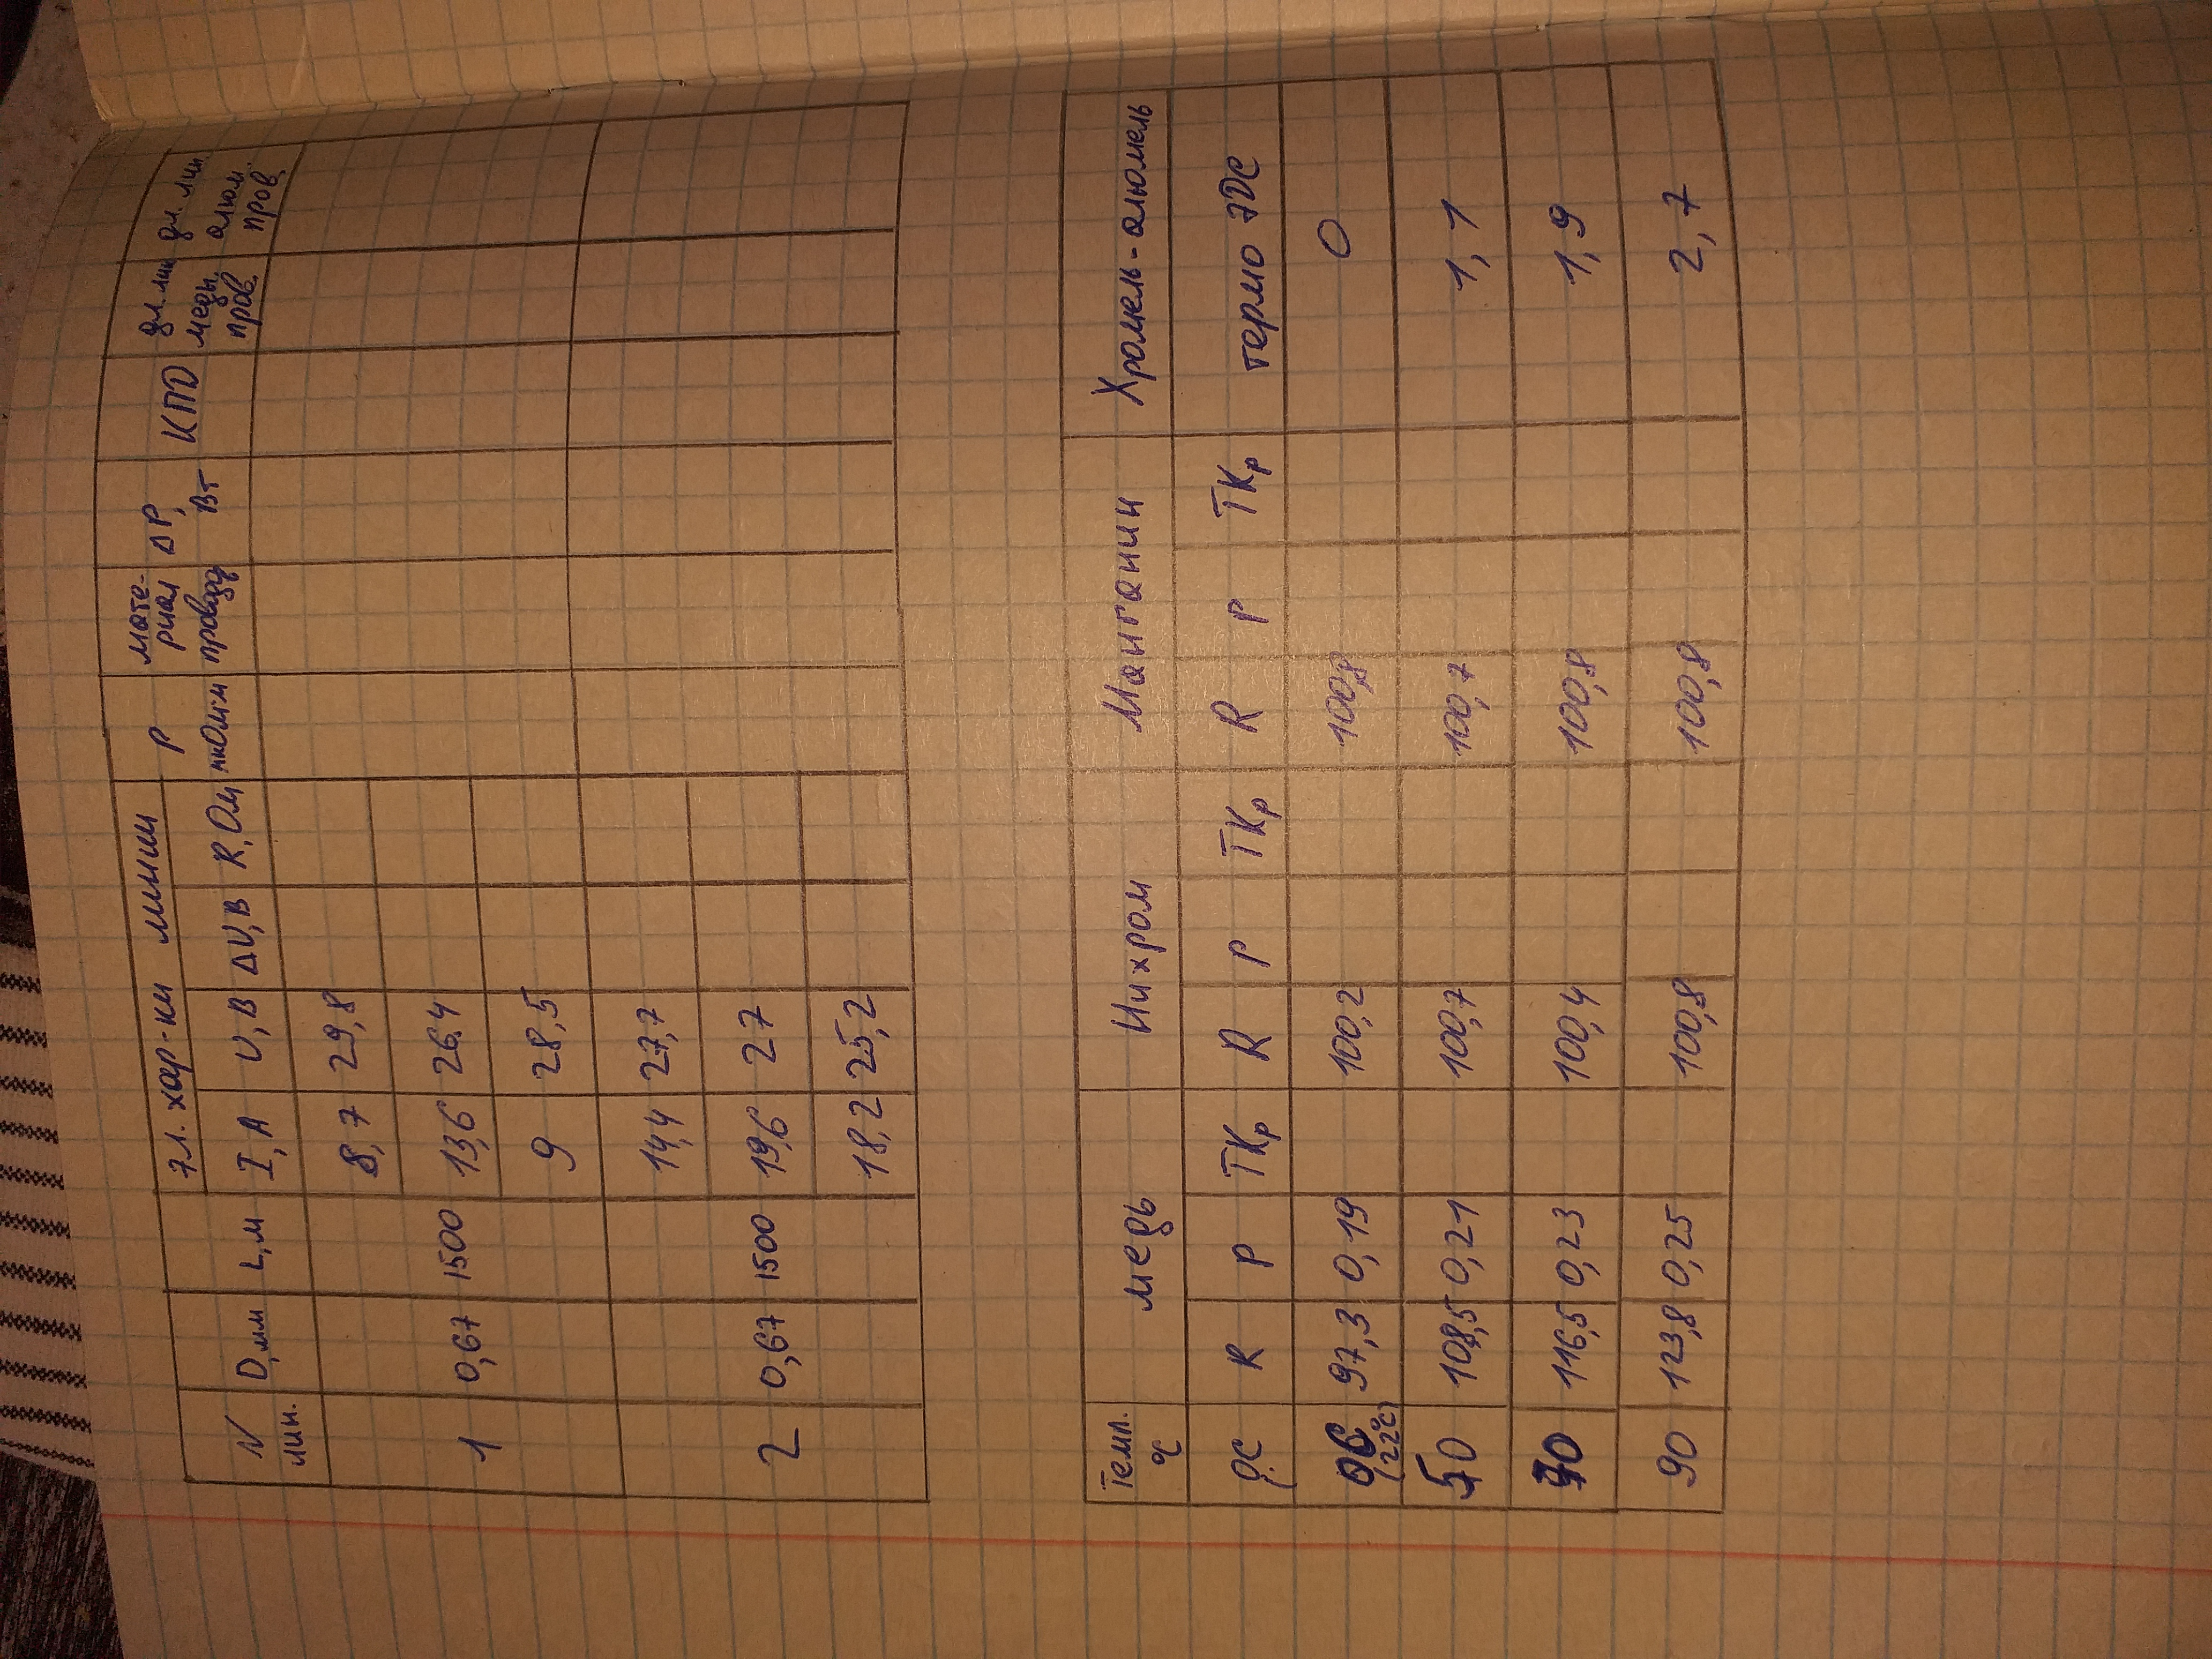 N лин. D,мм L,м эл. хар-ки линии ρ мкОм·м мате-риал провод ΔP, Вт КПД дл. лин медн. пров. дл. лин алюм. пров.
I, А U, В ΔU, В R, Ом
8,7 29,8
1 0,67 1500 13,6 26,4
9 28,5
14,4 27,7
2 0,67 1500 19,6 27
18,2 25,2
Темп. °С медь Нихром Манганин Хромель-алюмель
О.С R ρ ТКρ R ρ ТКρ R ρ ТКρ термо ЭДС
ОС (22°С) 97,3 0,19 100,2 100,8 0
50 108,5 0,21 100,7 100,7 1,1
70 116,5 0,23 100,4 100,8 1,9
90 123,8 0,25 100,8 100,8 2,7